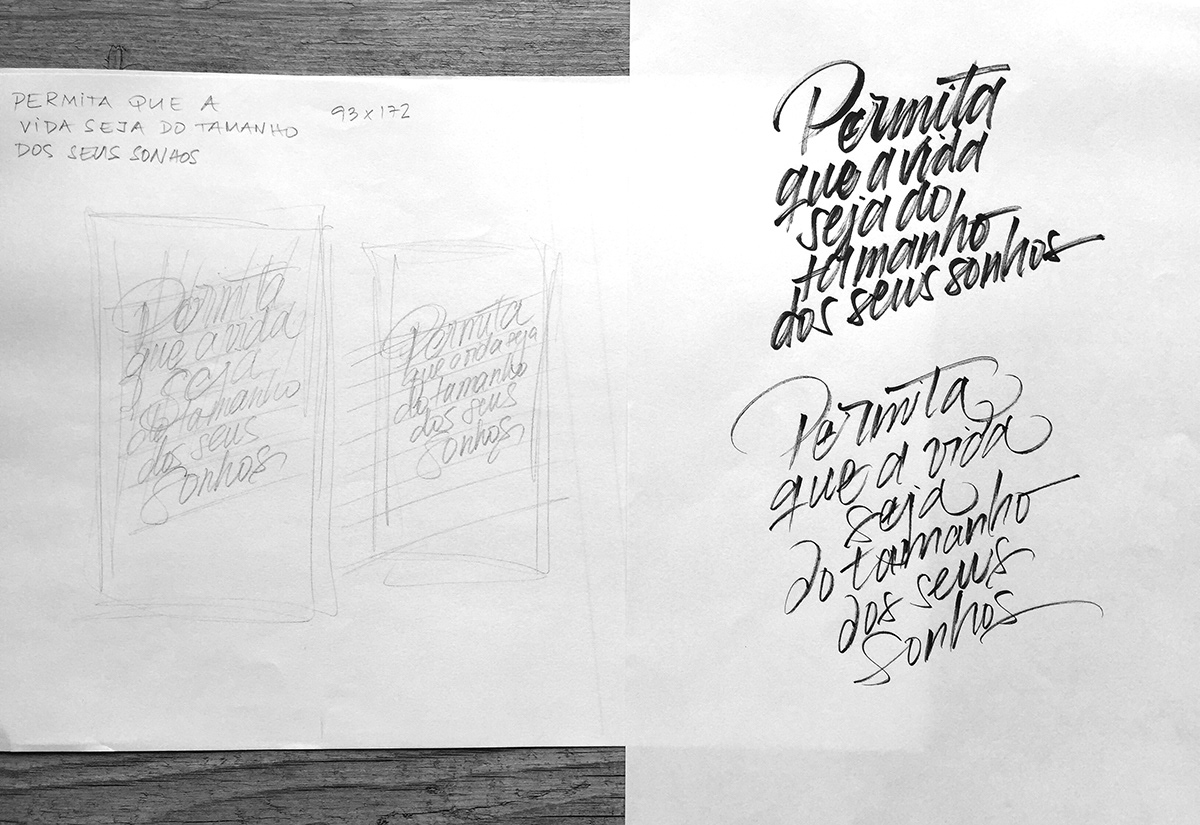 PERMITA QUE A
VIDA SEJA DO TAMANHO
DOS SEUS SONHOS
93 x 172
Permita
que a vida
seja
do tamanho
dos seus
sonhos
Permita
que a vida seja
do tamanho
dos seus
sonhos
Permita
que a vida
seja do
tamanho
dos seus sonhos
Permita
que a vida
seja
do tamanho
dos seus
sonhos